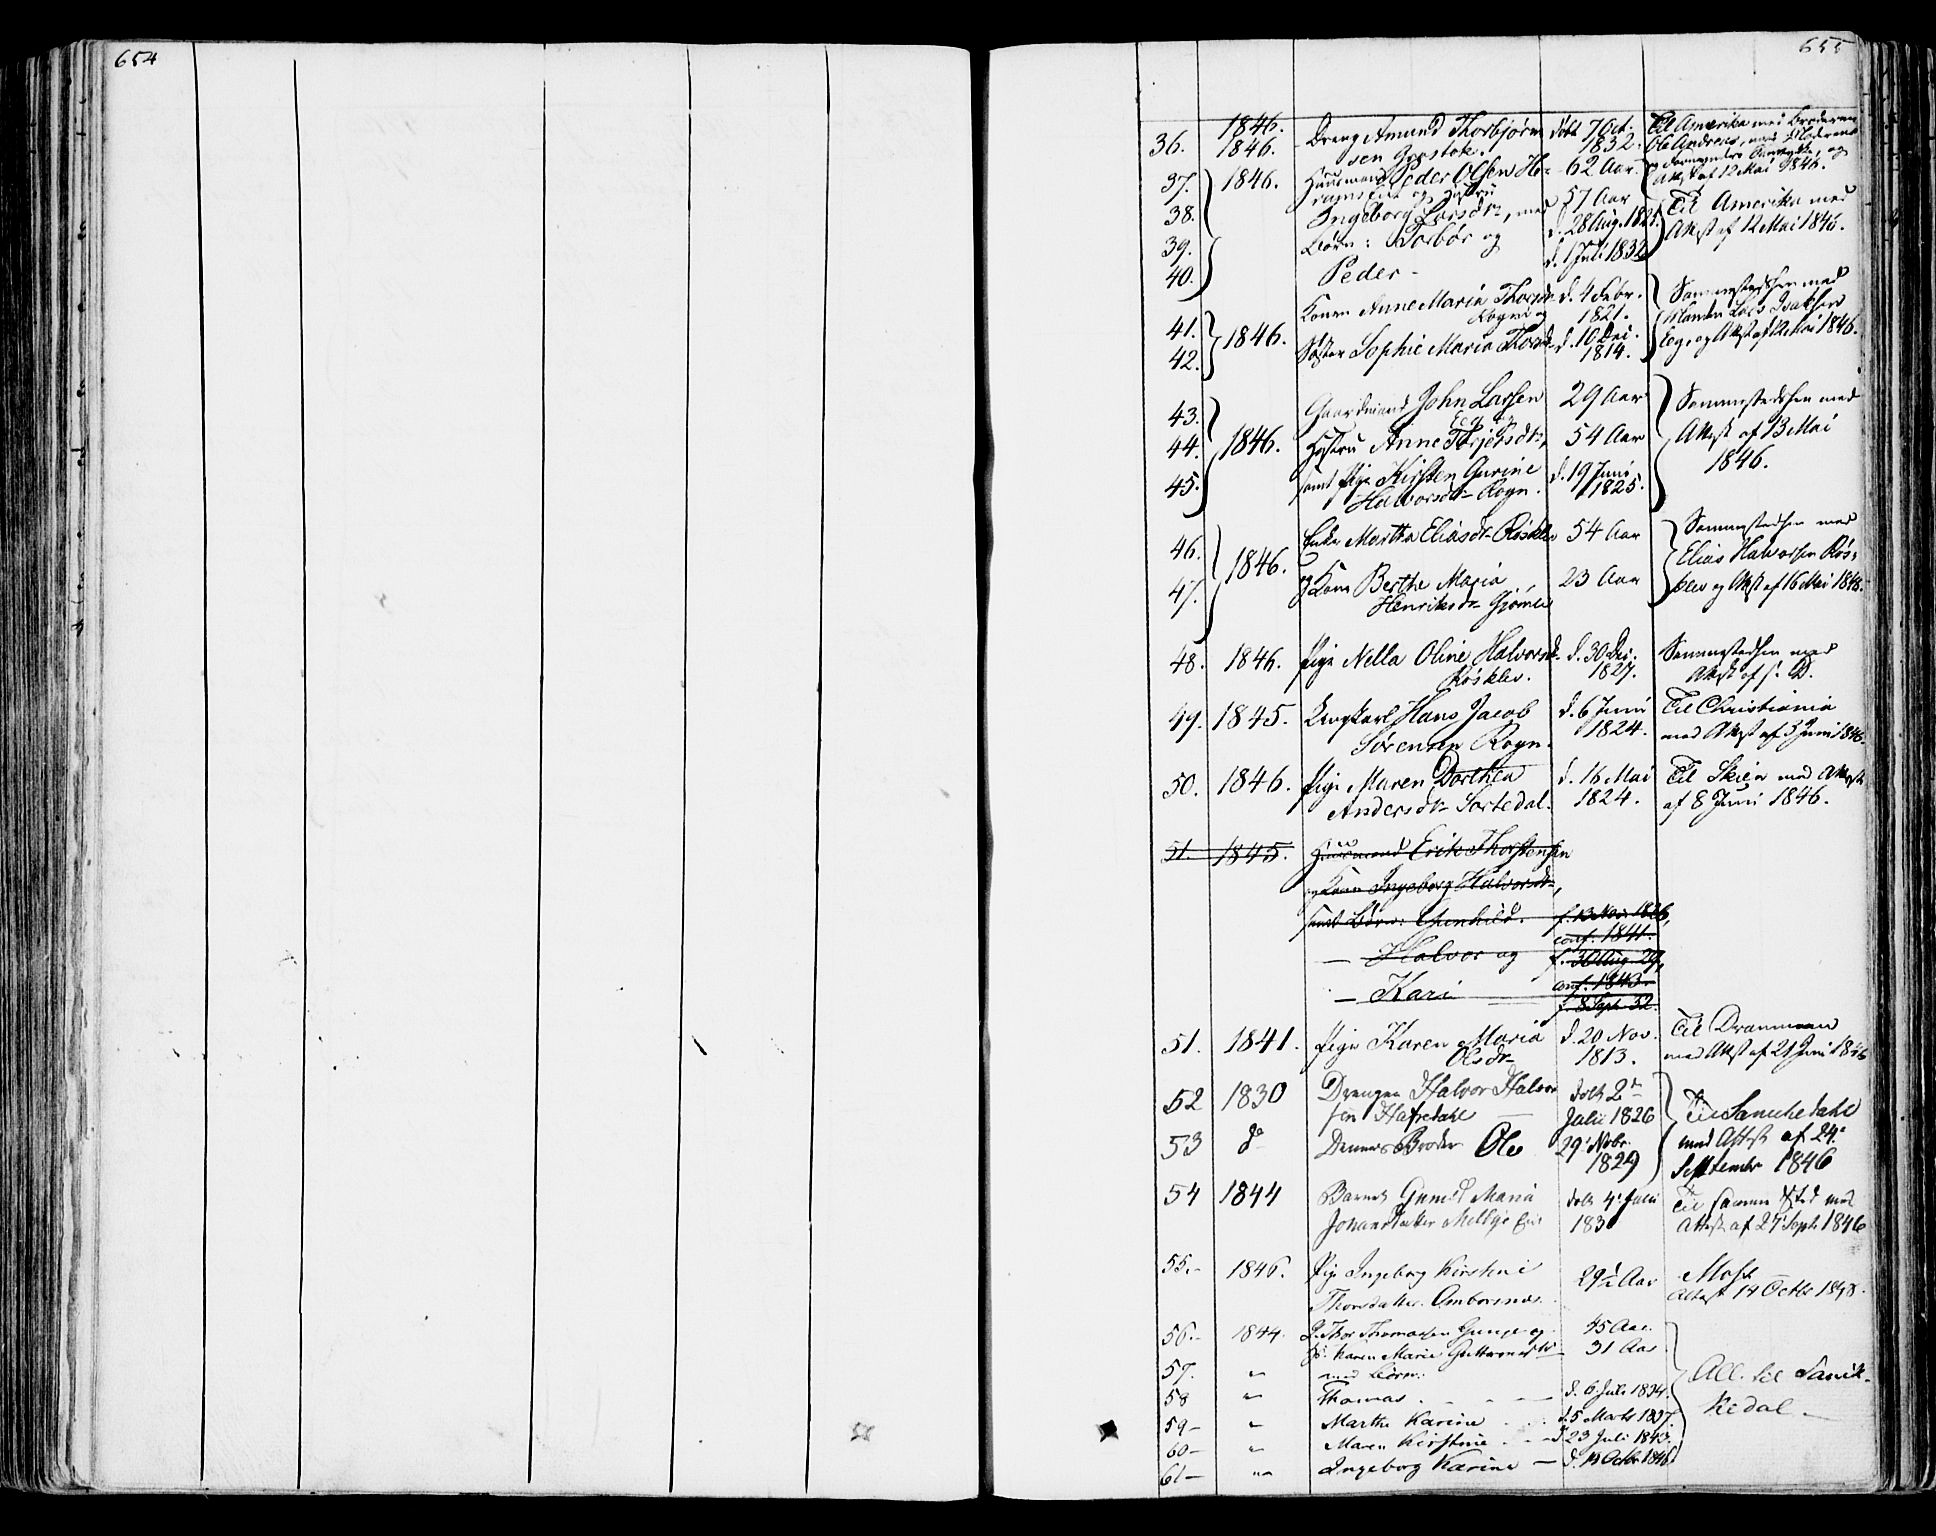 654
655
36. 1846. 1846. Dreng Amund Thorbjørn- døbt 7 Oct. Til Amerika med Broderen
sen 1832. Ole Andreas, med Moderens
37. 1846. Huusmand Peder Olsen 62 Aar og og
og Hustru Attest af 12 Mai 1846.
38. Ingeborg Larsdr, med 57 Aar Til Amerika med
39. Børn: Torbør og d. 28 Aug. 1825. Attest af 12 Mai 1846.
40. Peder - d. 1 Juli 1832
41. 1846. Konen Anne Maria Thorsdr d. 4 Febr. Sammestedshen med
Rogn og 1821. Manden Lars Isaksen
42. Søster Sophie Maria Thorsdr d. 10 Dec. Eeg, og Attest af 12 Mai 1846.
1814.
43. 1846. Gaardmand John Larsen 29 Aar Sammestedshen med
44. Hustru Anne Terjersdr, 54 Aar Attest af 13 Mai
45. samt Pige Kirsten Gurine d. 19 Juni 1846.
Halvorsdr Rogn. 1825.
46. 1846. Enke Martha Eliasdr Røsklev 54 Aar Sammestedshen med
Elias Halvorsen Røs-
47. og Kone Berthe Maria 23 Aar klev og Attest af 16 Mai 1846.
Henriksdr
48. 1846. Pige Nella Oline Halvorsdr d. 30 Dec. Sammestedshen med
Røsklev. 1827. Attest af s. D.
49. 1845. Ungkarl Hans Jacob d. 6 Juni Til Christiania
Sørensen Rogn. 1824. med Attest af 3 Juni 1846.
50. 1846. Pige Maren Dorthea d. 16 Mai Til Skien med Attest
Andersdr Sortedal. 1824. af 8 Juni 1846.
51. 1845. Huusmand Erik Thorstensen
og Kone Ingeborg Halvorsdr,
samt Børn: Gunhild. f. 13 Nov. 1826,
conf. 1841.
— Halvor og f. 30 Aug. 29,
conf. 1843.
— Kari f. 8 Sept. 32.
51. 1841. Pige Karen Maria d. 20 Nov. Til Drammen
Olsdr 1813. med Attest af 21 Juni 1846
52 1830 Drengen Halvor Halvor døbt 2den
sen Hafredahl Julii 1826 Til Sanikedahl
53 do Dennes Broder Ole 29. Novbr. med Attest af 24.
1829 September 1846
54 1844 Barnet Maria døbt 4. Julii Til samme Sted med
Johansdatter 183 Attest af 27 Septb 1846
55.- 1846. Pige Ingeborg Kirstine 29½ Aar Moss
Thorsdatter. Attest 14 Octbr
56.- 1844. Thor Thomassen og 45 Aar.
Karen Marie Guttormsdtr 31 Aar
57. " med Børn: All. til Sanik-
58 " Thomas d. 6 Juli 1834. kedal. —
59- " Marthe Karine d. 5 Marts 1837.
60- " Maren Kirstine d. 23 Juli 1843.
61- " Ingeborg Karine — d. 14 Octbr. 1846.